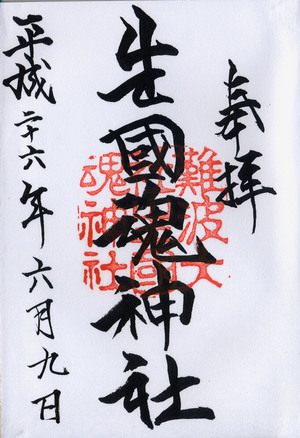 奉拝
生國魂神社
平成二十六年六月九日
難波大
魂神社